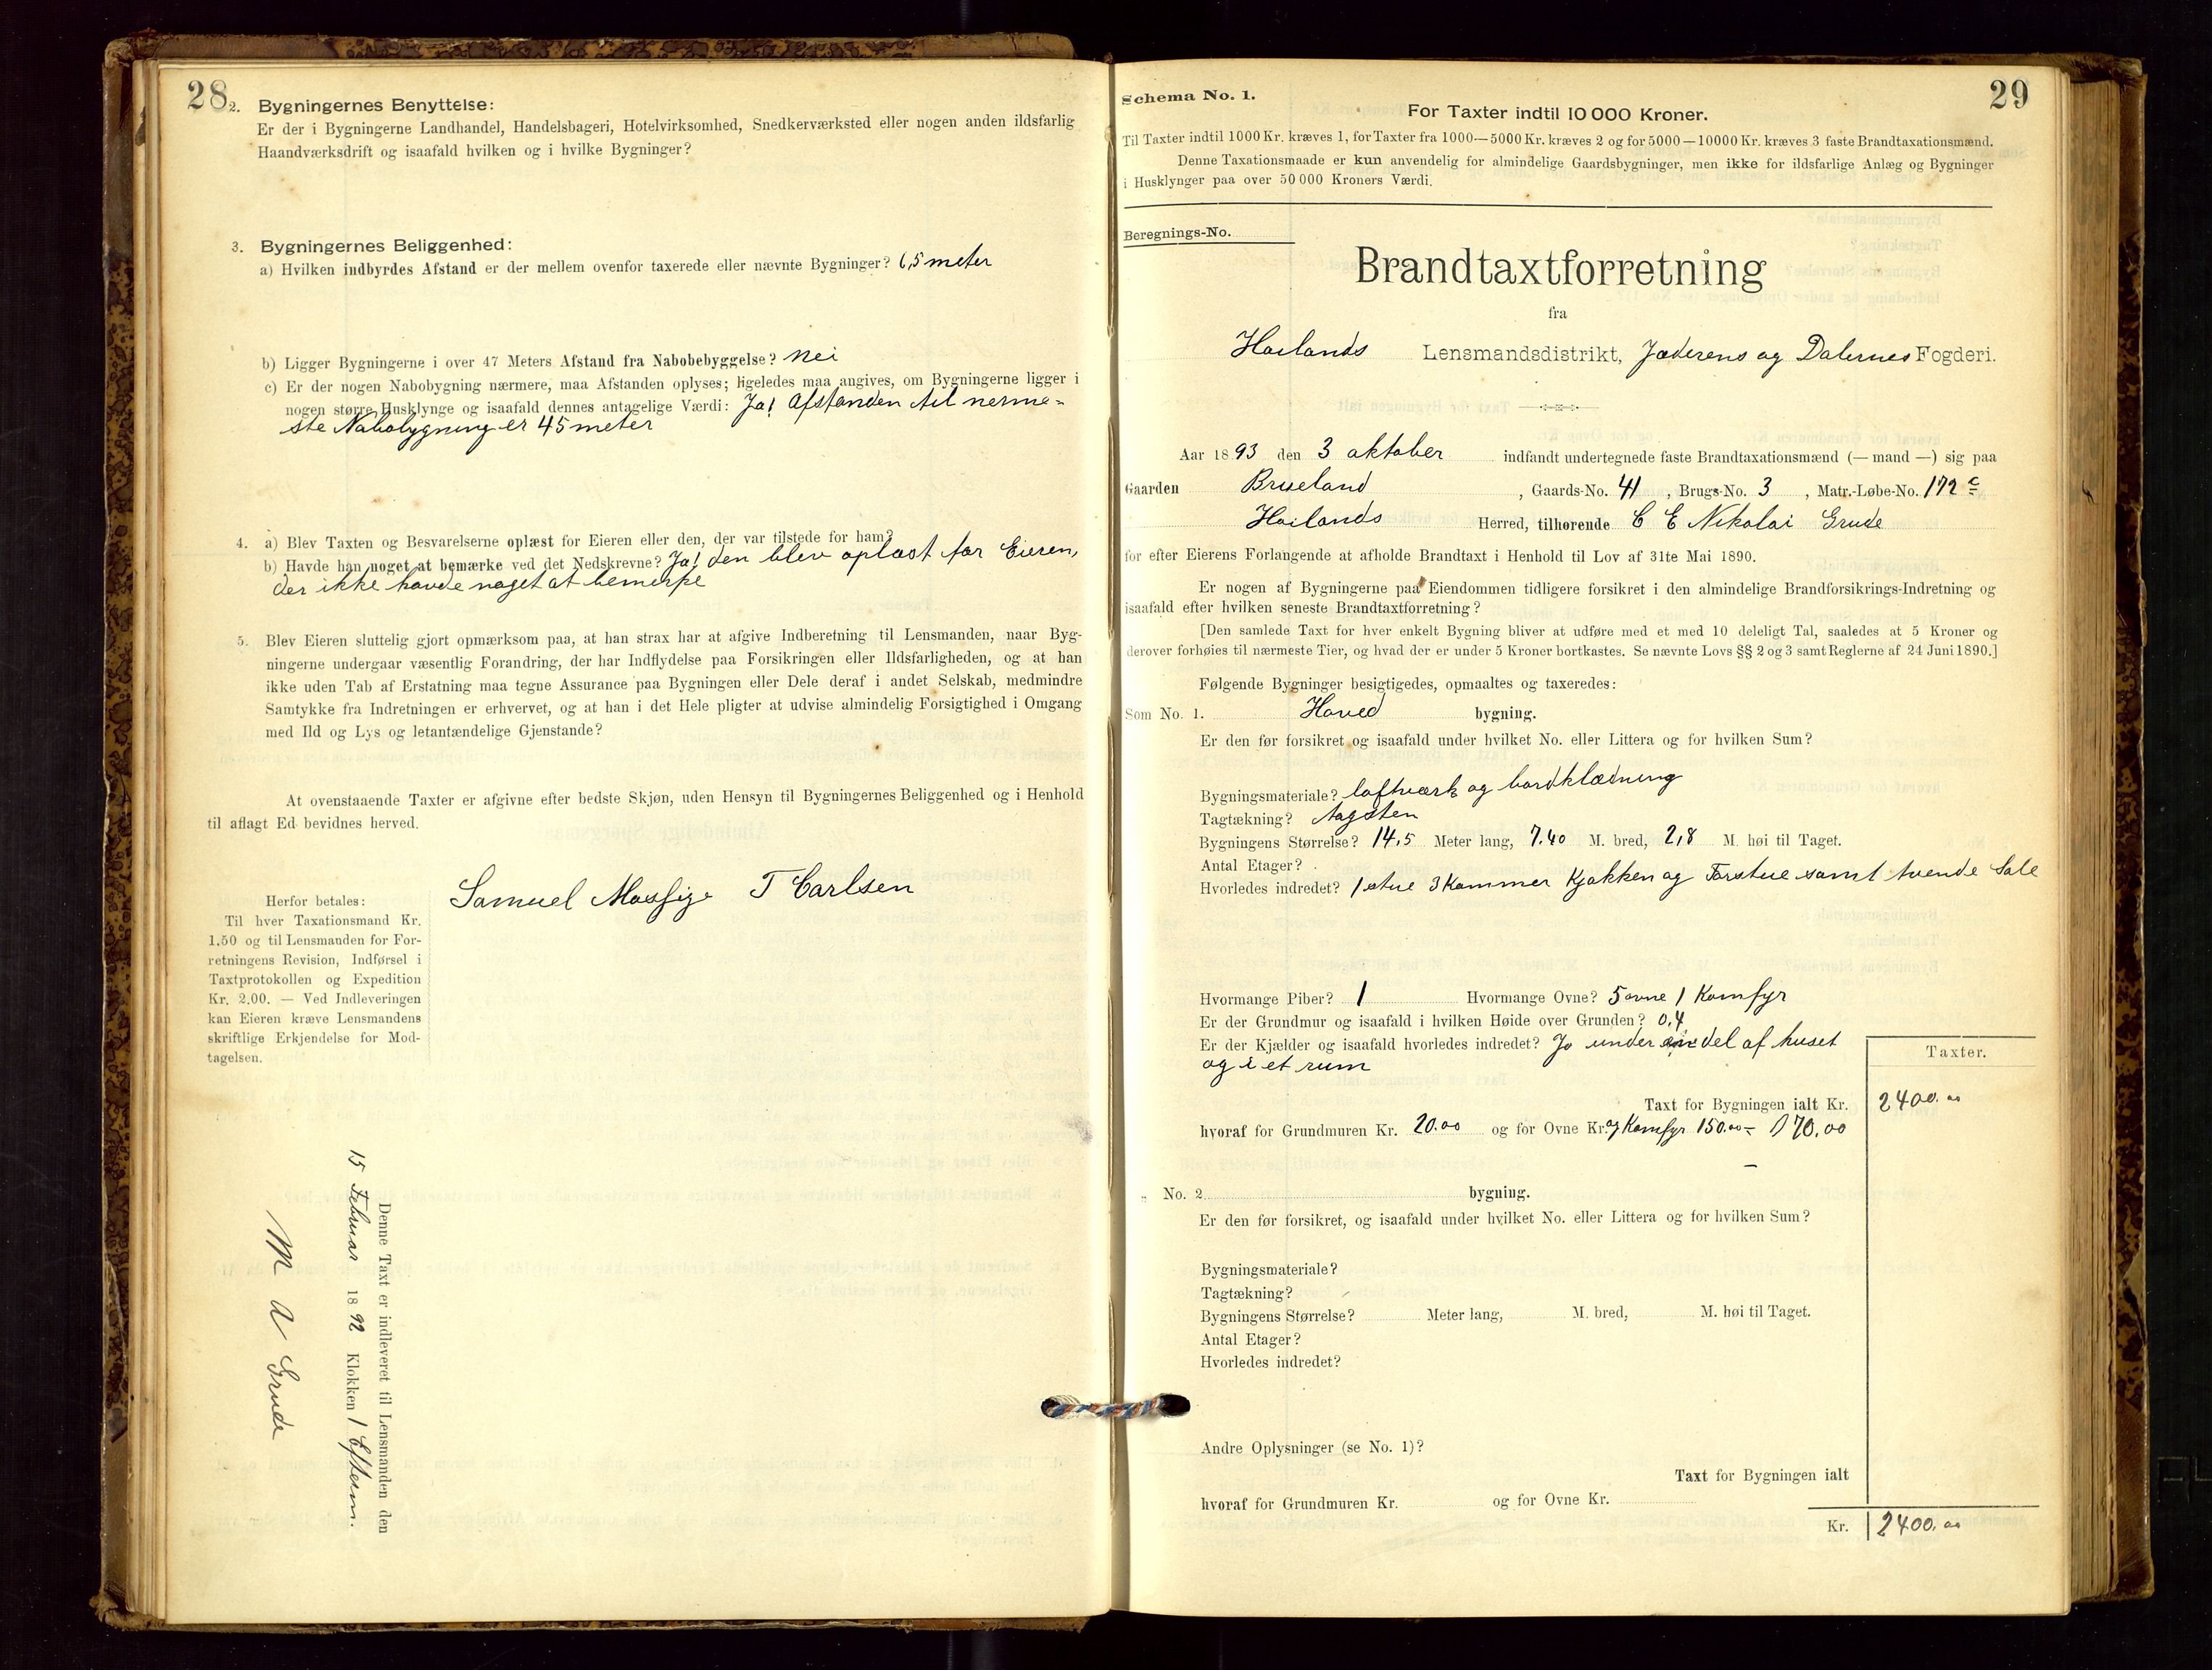 28
2. Bygningernes Benyttelse:
Er der i Bygningerne Landhandel, Handelsbageri, Hotelvirksomhed, Snedkerværksted eller nogen anden ildsfarlig
Haandværksdrift og isaafald hvilken og i hvilke Bygninger?
3. Bygningernes Beliggenhed:
a) Hvilken indbyrdes Afstand er der mellem ovenfor taxerede eller nævnte Bygninger? 6,5 meter
b) Ligger Bygningerne i over 47 Meters Afstand fra Nabobebyggelse? Nei
c) Er der nogen Nabobygning nærmere, maa Afstanden oplyses; ligeledes maa angives, om Bygningerne ligger i
nogen større Husklynge og isaafald dennes antagelige Værdi: Ja! Afstanden til nerme-
ste Nabobygning er 45 meter
4. a) Blev Taxten og Besvarelserne oplæst for Eieren eller den, der var tilstede for ham?
b) Havde han noget at bemærke ved det Nedskrevne? Ja! den blev oplæst for Eieren,
der ikke havde noget at bemerke
5. Blev Eieren sluttelig gjort opmærksom paa, at han strax har at afgive Indberetning til Lensmanden, naar Byg-
ningerne undergaar væsentlig Forandring, der har Indflydelse paa Forsikringen eller Ildsfarligheden, og at han
ikke uden Tab af Erstatning maa tegne Assurance paa Bygningen eller Dele deraf i andet Selskab, medmindre
Samtykke fra Indretningen er erhvervet, og at han i det Hele pligter at udvise almindelig Forsigtighed i Omgang
med Ild og Lys og letantændelige Gjenstande?
At ovenstaaende Taxter er afgivne efter bedste Skjøn, uden Hensyn til Bygningernes Beliggenhed og i Henhold
til aflagt Ed bevidnes herved.
Samuel Mossige T Carlsen
Herfor betales:
Til hver Taxationsmand Kr.
1.50 og til Lensmanden for For-
retningens Revision, Indførsel i
Taxtprotokollen og Expedition
Kr. 2.00. — Ved Indleveringen
kan Eieren kræve Lensmandens
skriftlige Erkjendelse for Mod-
tagelsen.
Denne Taxt er indleveret til Lensmanden den
15 Februar 1892 Klokken 1 Efterm.
M A Grude
29
Schema No. 1.
For Taxter indtil 10 000 Kroner.
Til Taxter indtil 1000 Kr. kræves 1, for Taxter fra 1000—5000 Kr. kræves 2 og for 5000—10000 Kr. kræves 3 faste Brandtaxationsmænd.
Denne Taxationsmaade er kun anvendelig for almindelige Gaardsbygninger, men ikke for ildsfarlige Anlæg og Bygninger
i Husklynger paa over 50 000 Kroners Værdi.
Beregnings-No.
Brandtaxtforretning
fra
Høilands Lensmandsdistrikt, Jæderens og Dalernes Fogderi.
Aar 1893 den 3 oktober indfandt undertegnede faste Brandtaxationsmænd (— mand —) sig paa
Gaarden Brueland, Gaards-No. 41, Brugs-No. 3, Matr.-Løbe-No. 172 c
Høilands Herred, tilhørende C E Nikolai Grude
for efter Eierens Forlangende at afholde Brandtaxt i Henhold til Lov af 31te Mai 1890.
Er nogen af Bygningerne paa Eiendommen tidligere forsikret i den almindelige Brandforsikrings-Indretning og
isaafald efter hvilken seneste Brandtaxtforretning?
[Den samlede Taxt for hver enkelt Bygning bliver at udføre med et med 10 deleligt Tal, saaledes at 5 Kroner og
derover forhøies til nærmeste Tier, og hvad der er under 5 Kroner bortkastes. Se nævnte Lovs §§ 2 og 3 samt Reglerne af 24 Juni 1890.]
Følgende Bygninger besigtigedes, opmaaltes og taxeredes:
Som No. 1. Hoved bygning.
Er den før forsikret og isaafald under hvilket No. eller Littera og for hvilken Sum?
Bygningsmateriale? loftværk og bordklædning
Tagtækning? Tagsten
Bygningens Størrelse? 14,5 Meter lang, 7.40 M. bred, 2,8 M. høi til Taget.
Antal Etager?
Hvorledes indredet? 1 stue 3 Kammer Kjøkken og Forstue samt tvende Sale
Hvormange Piber? 1 Hvormange Ovne? 5 ovne 1 Komfyr
Er der Grundmur og isaafald i hvilken Høide over Grunden? 0,4
Er der Kjælder og isaafald hvorledes indredet? Ja under en del af huset
og i et rum
Taxter.
Taxt for Bygningen ialt Kr. 2400.00
hvoraf for Grundmuren Kr. 20.00 og for Ovne Kr. og Komfyr 150.00 = 170,00
" No. 2 bygning.
Er den før forsikret, og isaafald under hvilket No. eller Littera og for hvilken Sum?
Bygningsmateriale?
Tagtækning?
Bygningens Størrelse? Meter lang, M. bred, M. høi til Taget.
Antal Etager?
Hvorledes indredet?
Andre Oplysninger (se No. 1)?
Taxt for Bygningen ialt
hvoraf for Grundmuren Kr. og for Ovne Kr.
Kr. 2400.00